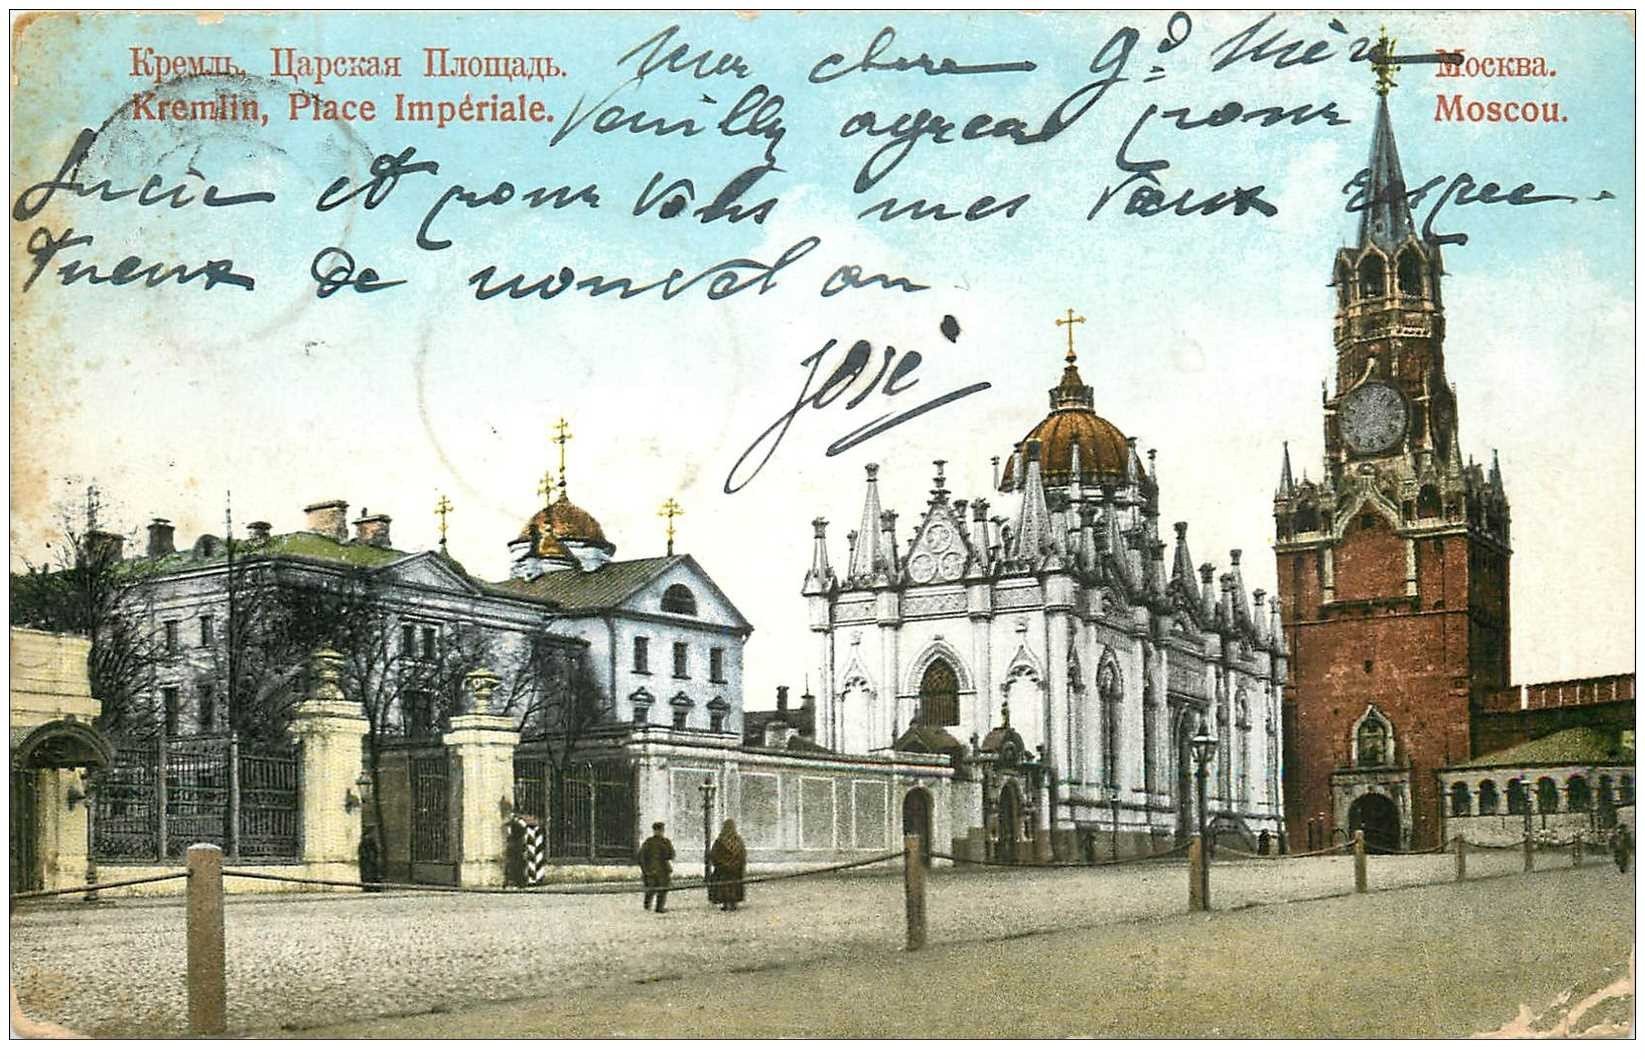 Кремль. Царская Площадь.
Kremlin, Place Impériale.
Москва.
Moscou.
Ma chère Gd Mère
Veuillez agréer pour
Lucie et pour vous mes vœux respec-
tueux de nouvel an
José